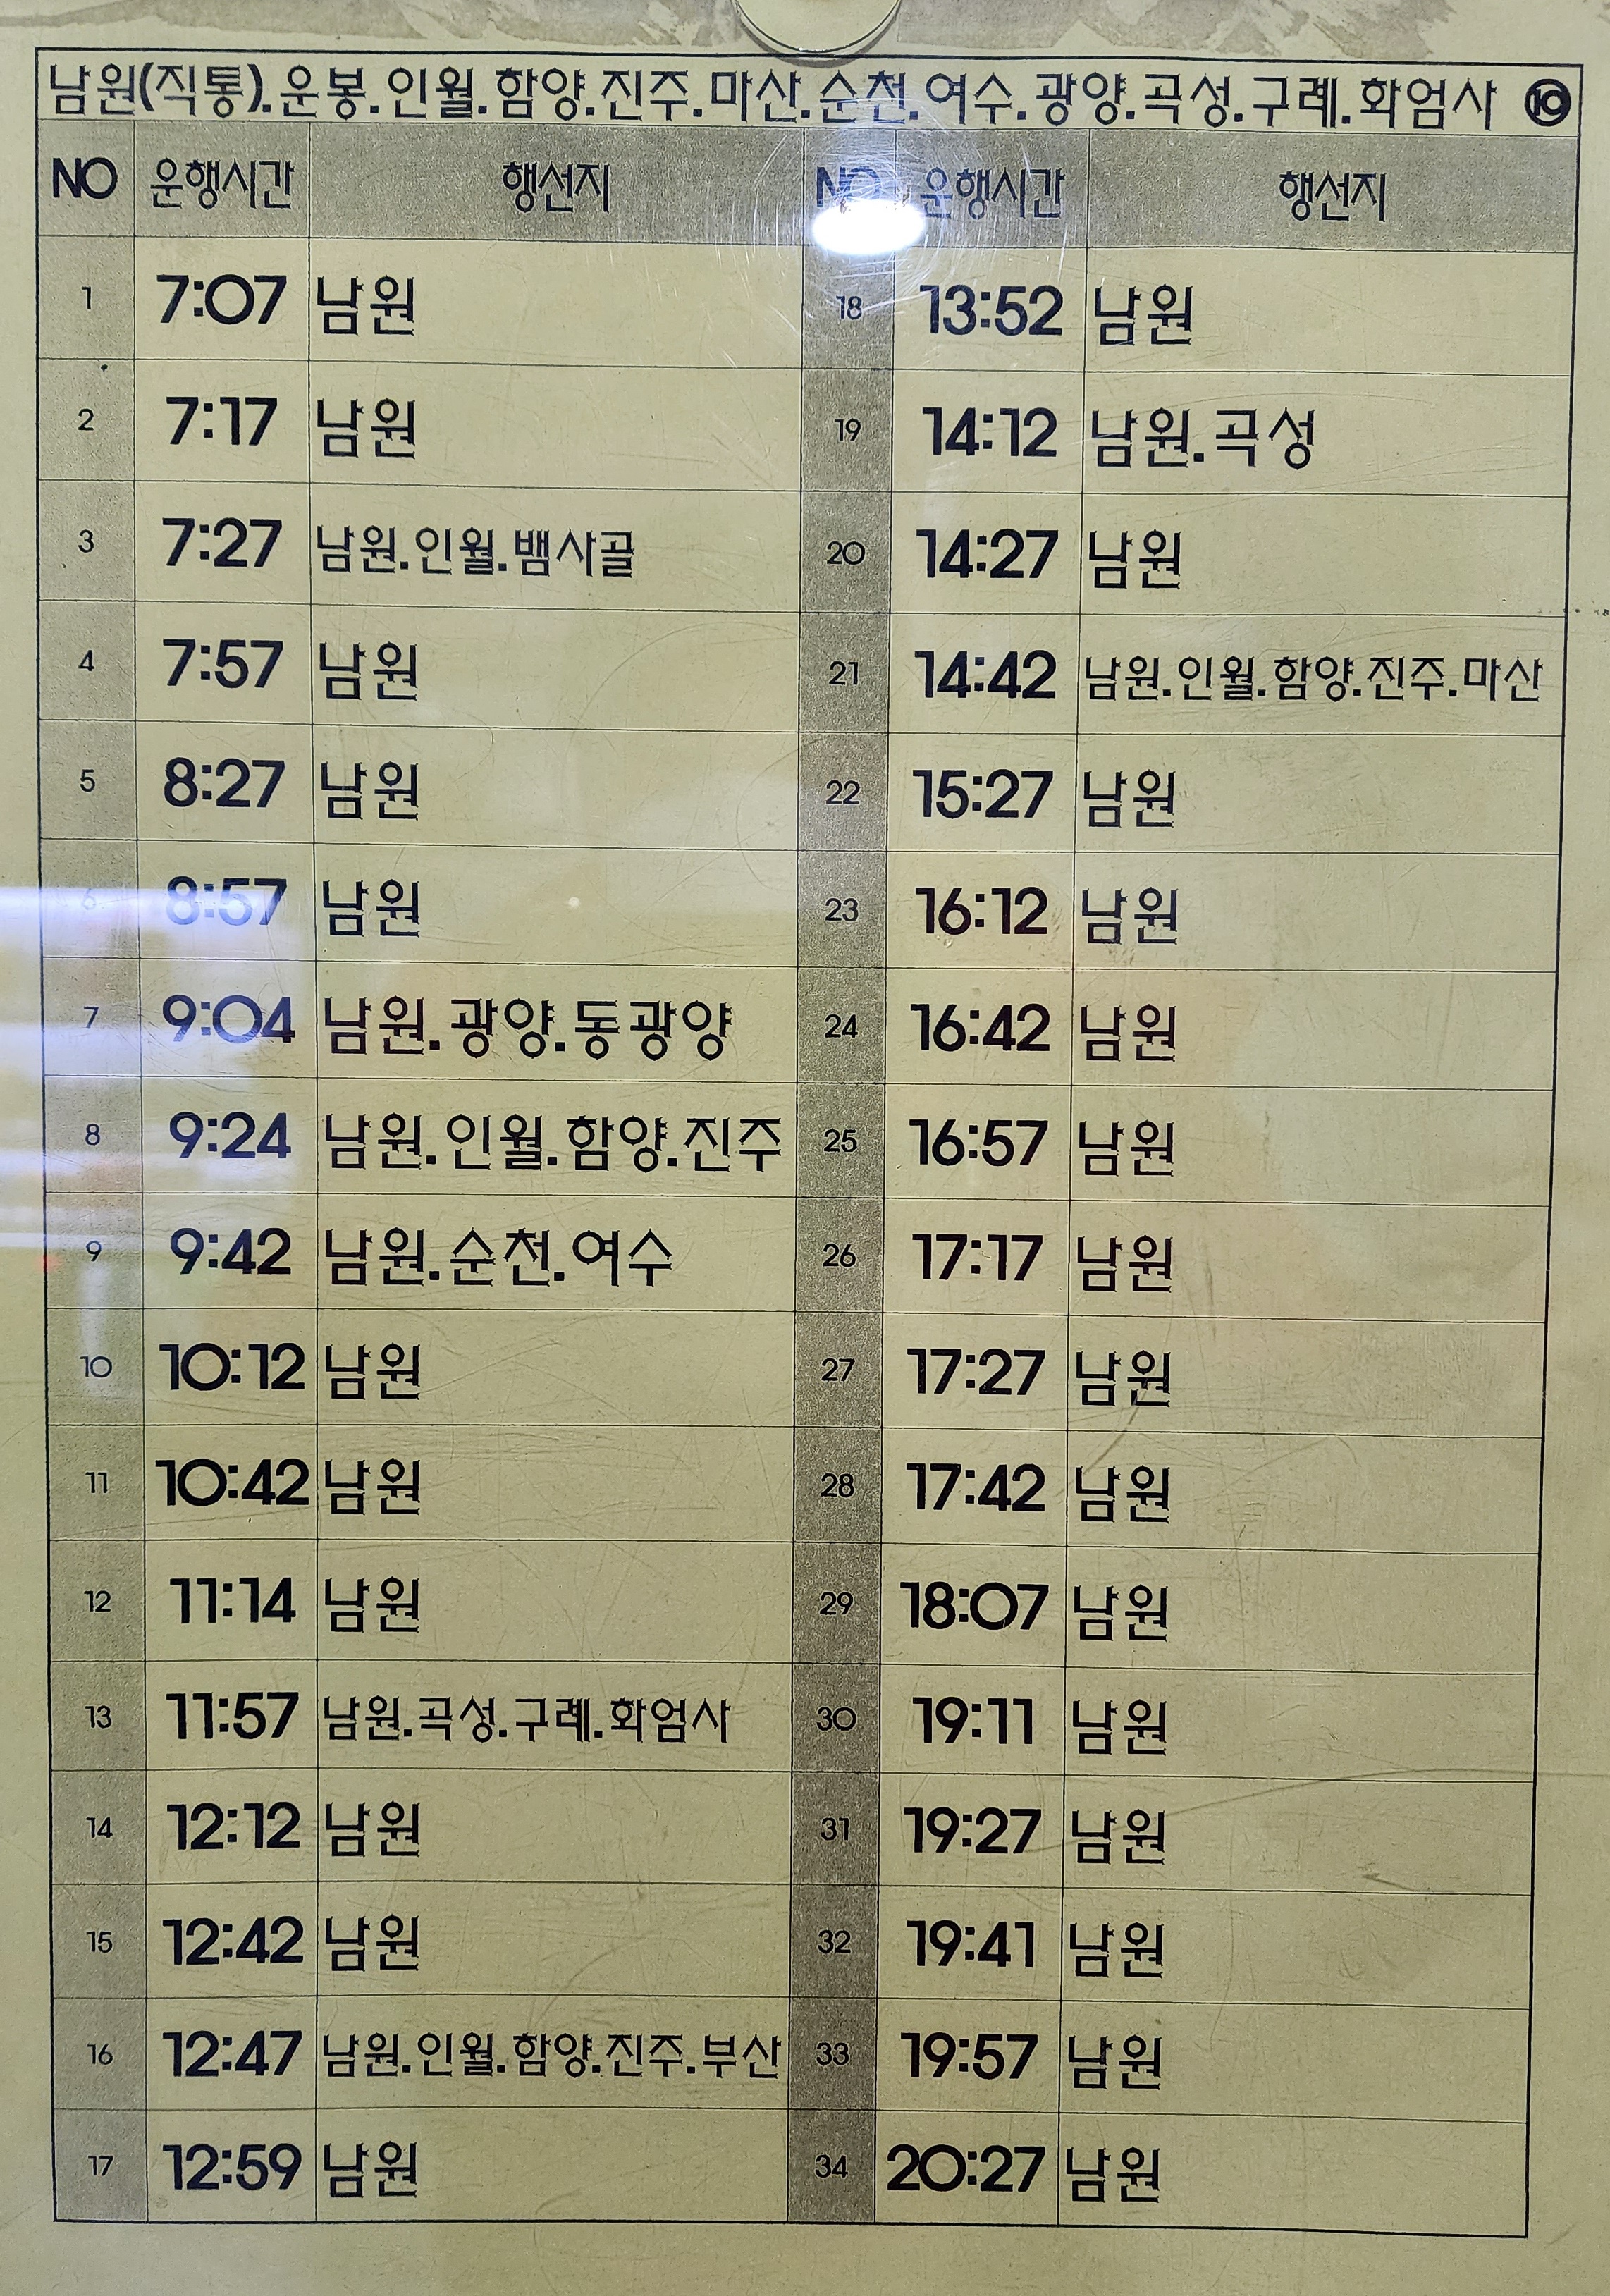 남원(직통).운봉.인월.함양.진주.마산.순천.여수.광양.곡성.구례.화엄사 ⑩
NO 운행시간 행선지 NO 운행시간 행선지
1 7:07 남원 18 13:52 남원
2 7:17 남원 19 14:12 남원.곡성
3 7:27 남원.인월.뱀사골 20 14:27 남원
4 7:57 남원 21 14:42 남원.인월.함양.진주.마산
5 8:27 남원 22 15:27 남원
6 8:57 남원 23 16:12 남원
7 9:04 남원.광양.동광양 24 16:42 남원
8 9:24 남원.인월.함양.진주 25 16:57 남원
9 9:42 남원.순천.여수 26 17:17 남원
10 10:12 남원 27 17:27 남원
11 10:42 남원 28 17:42 남원
12 11:14 남원 29 18:07 남원
13 11:57 남원.곡성.구례.화엄사 30 19:11 남원
14 12:12 남원 31 19:27 남원
15 12:42 남원 32 19:41 남원
16 12:47 남원.인월.함양.진주.부산 33 19:57 남원
17 12:59 남원 34 20:27 남원